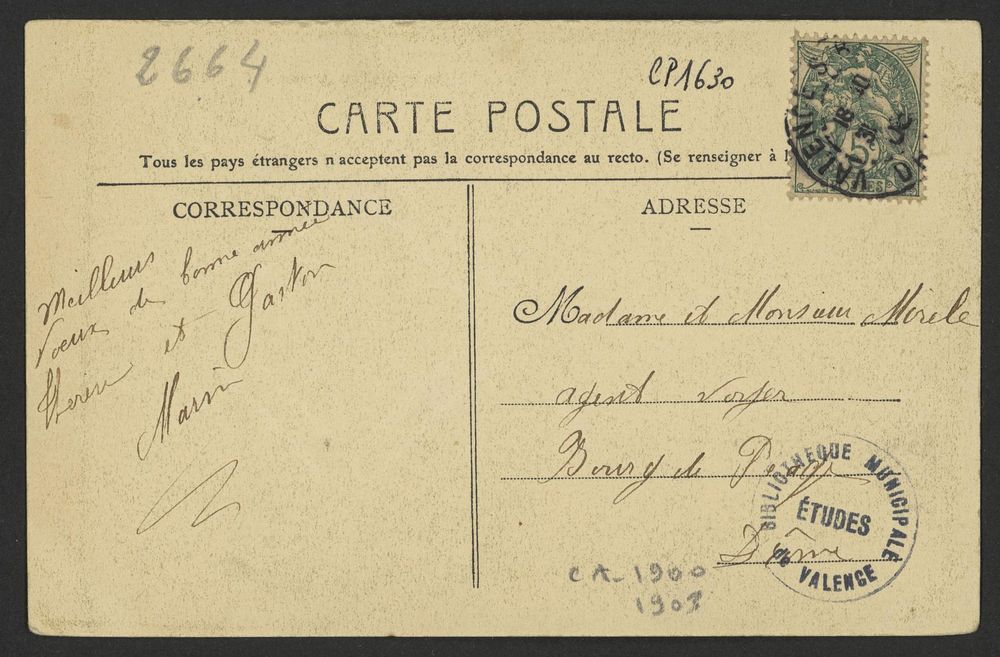 2664
CP1630
CARTE POSTALE
Tous les pays étrangers n acceptent pas la correspondance au recto. (Se renseigner à l
CORRESPONDANCE
ADRESSE
VALENCE S
18
31
5
Meilleurs
vœux de bonne année
et Gaston
Marin
Madame et Monsieur Mirele
agent voyer
Bourg de Péage
Drôme
BIBLIOTHEQUE MUNICIPALE
ÉTUDES
VALENCE
CA_1900
1903